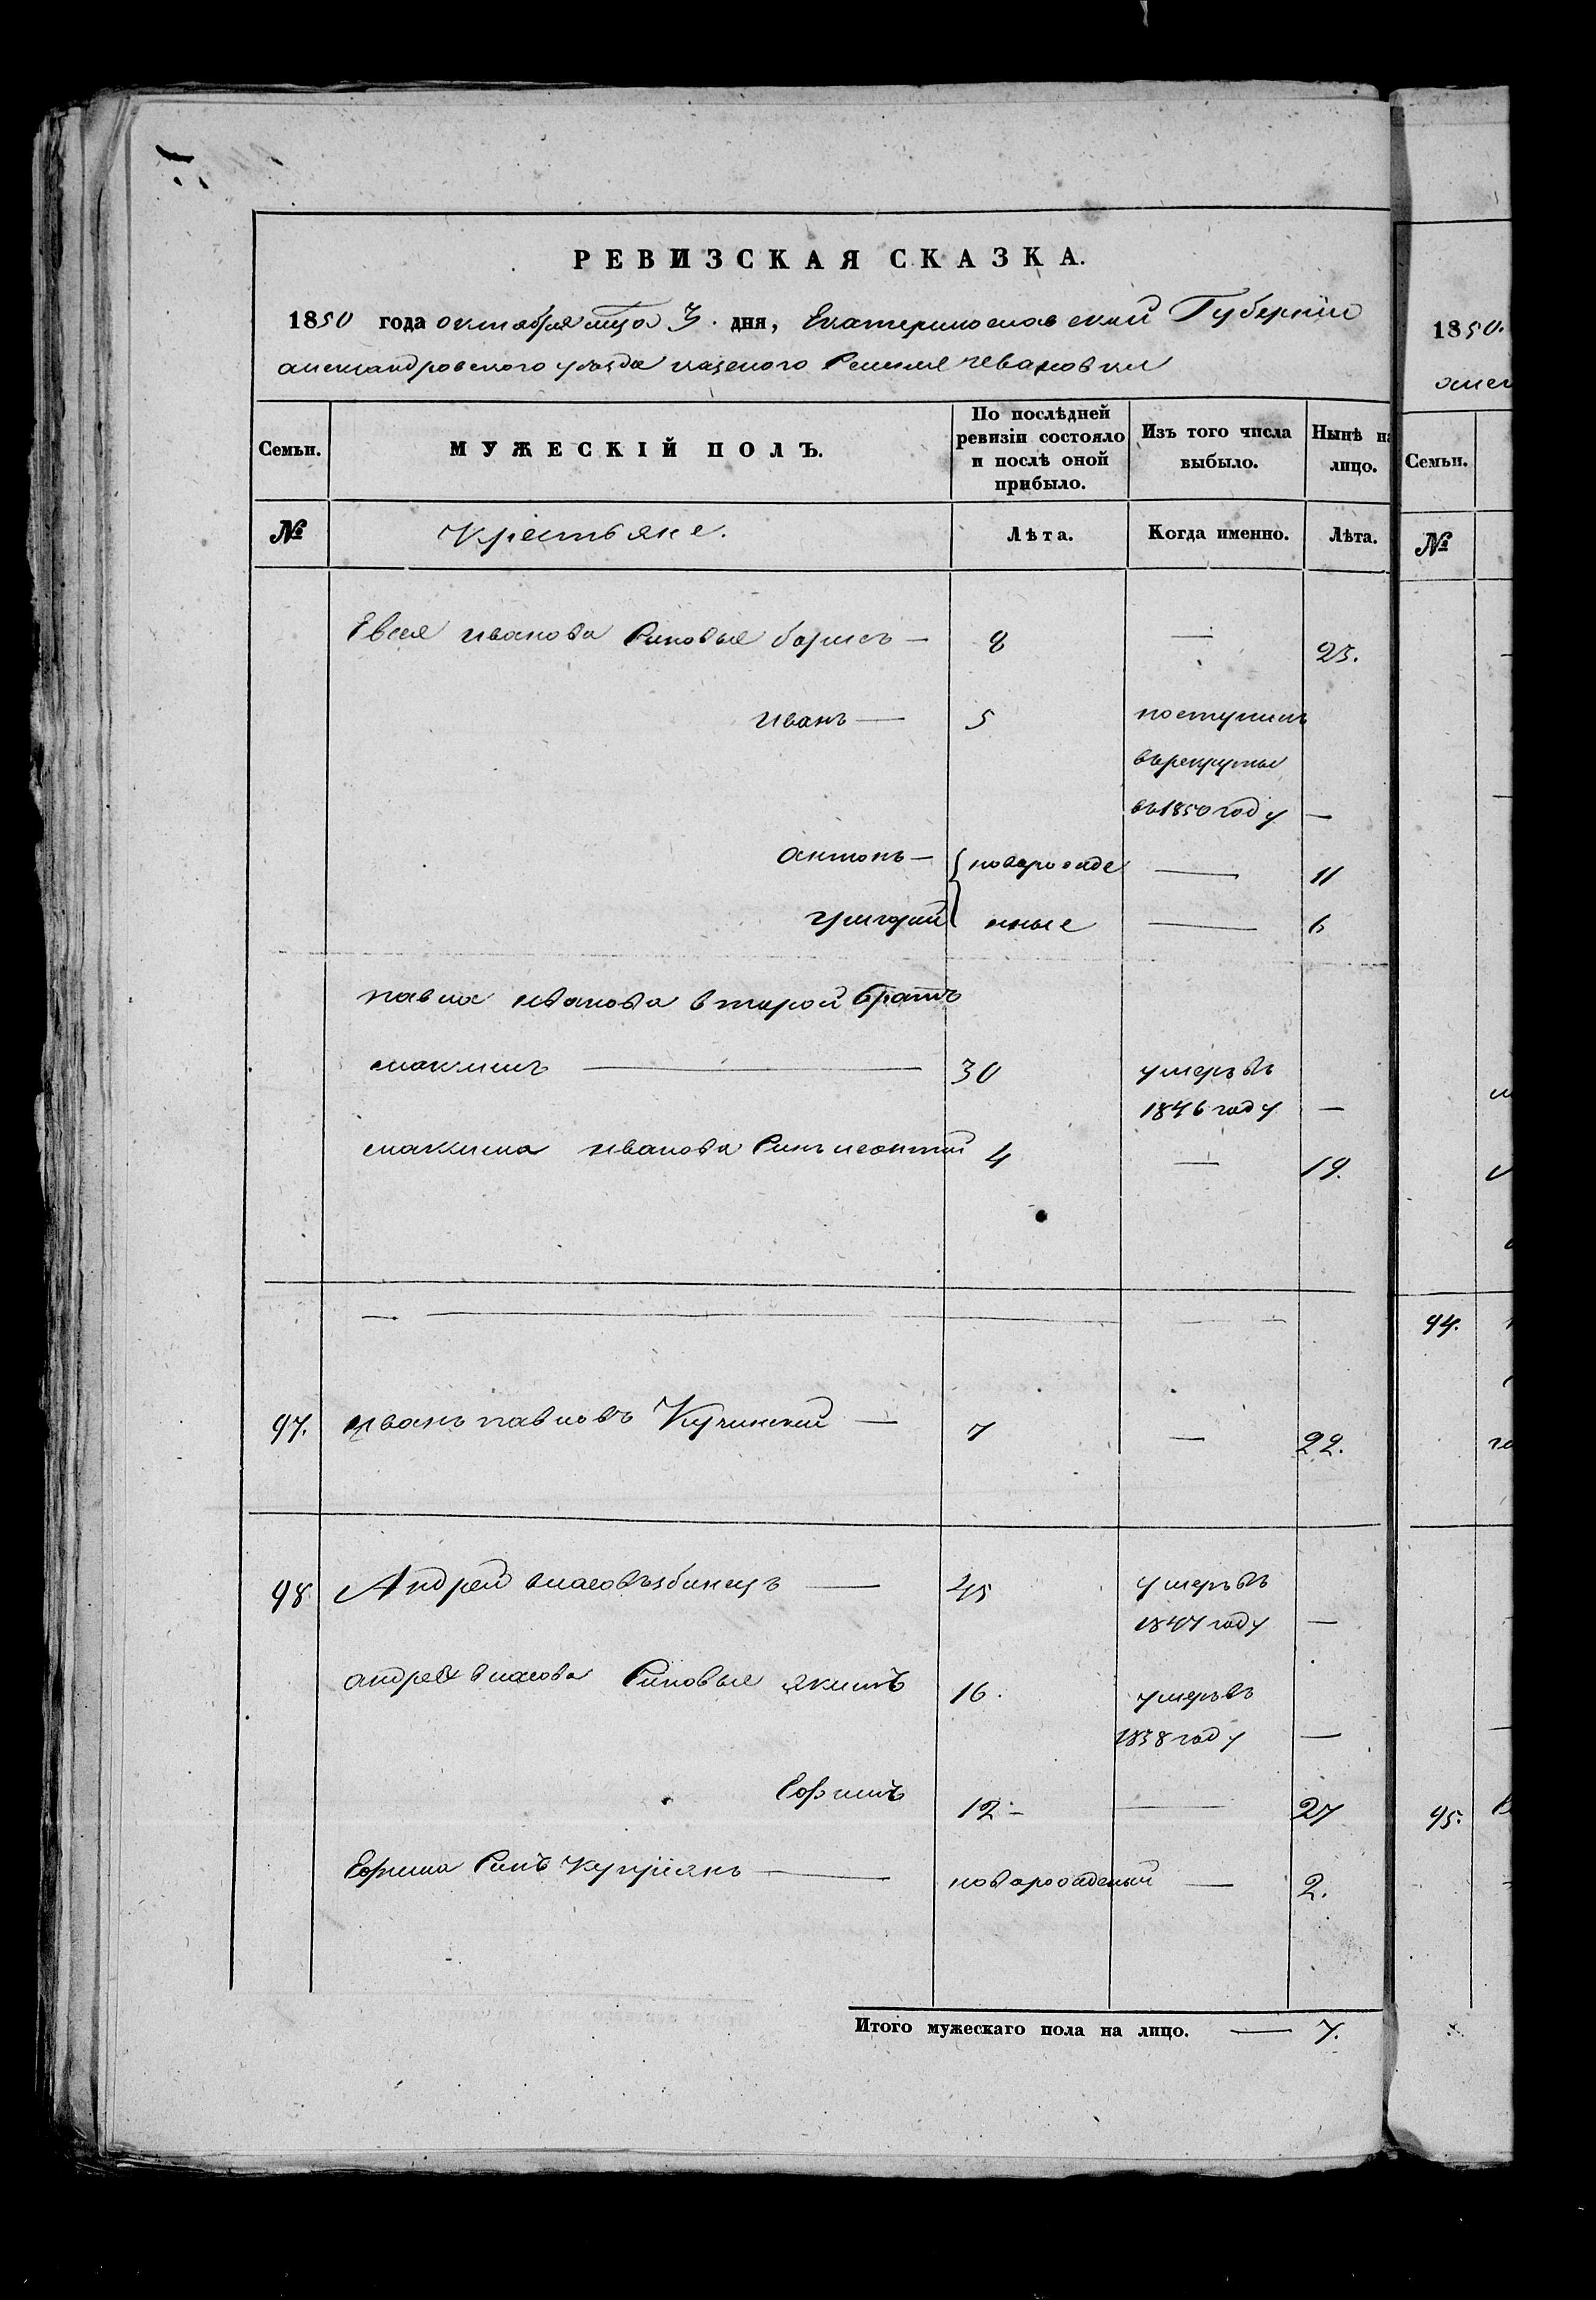 РЕВИЗСКАЯ СКАЗКА.
1850 года октября мца 3. дня, Екатеринославской Губерніи
александровского уѣзда казеного Селенія Ивановки
Семьи.
МУЖЕСКІЙ ПОЛЪ.
По послѣдней ревизіи состояло и послѣ оной прибыло.
Изъ того числа выбыло.
Нынѣ на лицо.
№
Крестьяне.
Лѣта.
Когда именно.
Лѣта.
Евсея иванова Синовья борисъ — 8 — 23.
иванъ — 5 поступилъ
въ рекруты
въ 1850 году —
антонъ — новорожде — 11
григорий нные — 6
павла иванова второй братъ
максимъ — 30 умеръ въ
1846 году —
максима иванова Синъ леонтий 4 — 19.
97. иванъ павловъ Кучинский — 7 — 22.
98 Андрей власовъ — 45 умеръ въ
1847 году —
андрея власова Синовья якимъ 16. умеръ въ
1838 году —
Ефимъ 12 — 27
Ефима Синъ Куприянъ — новорожденый — 2.
Итого мужескаго пола на лицо. — 7.
1850.
Семьи.
№
94.
95.